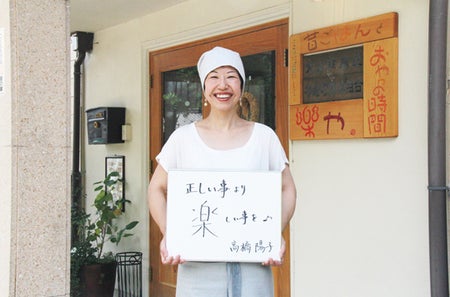 昔ごはんと
おやつの時間
楽や。
正しい事より
楽しい事を♪
高橋陽子